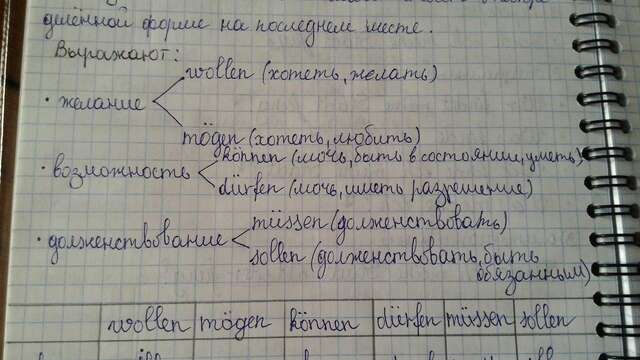 делённой форме на последнем месте.
Выражают:
wollen (хотеть, желать)
• желание
mögen (хотеть, любить)
können (мочь, быть в состоянии, уметь)
• возможность
dürfen (мочь, иметь разрешение)
müssen (долженствовать)
• долженствование
sollen (долженствовать, быть
обязанным)
wollen mögen können dürfen müssen sollen